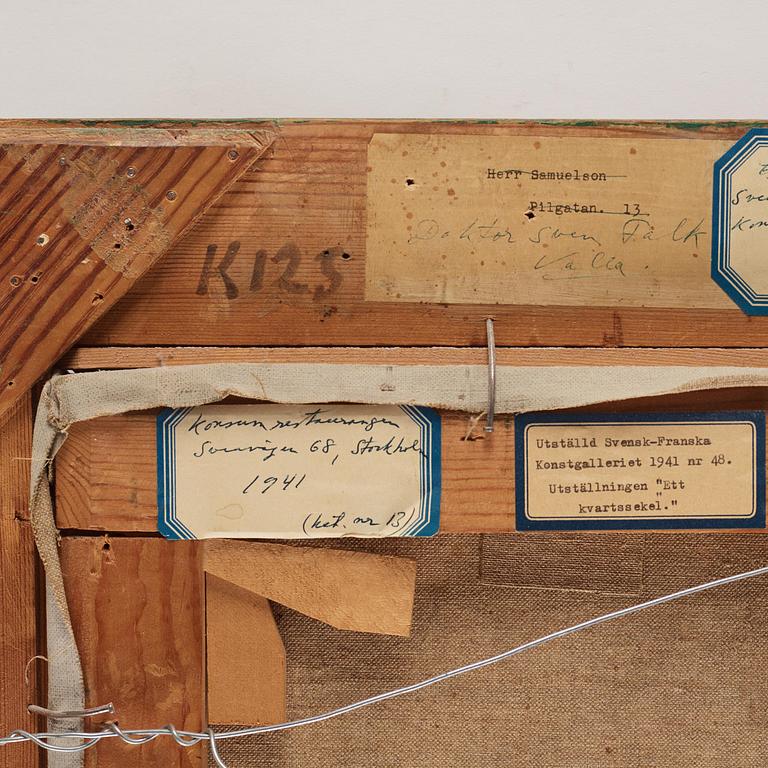 Herr Samuelson
Pilgatan. 13
Doktor Sven Falk
Valla.
K123
Sve
Kon
Konsumrestaurangen
Sveavägen 68, Stockholm
1941
(kat. nr 13)
Utställd Svensk-Franska
Konstgalleriet 1941 nr 48.
Utställningen "Ett
kvartssekel."